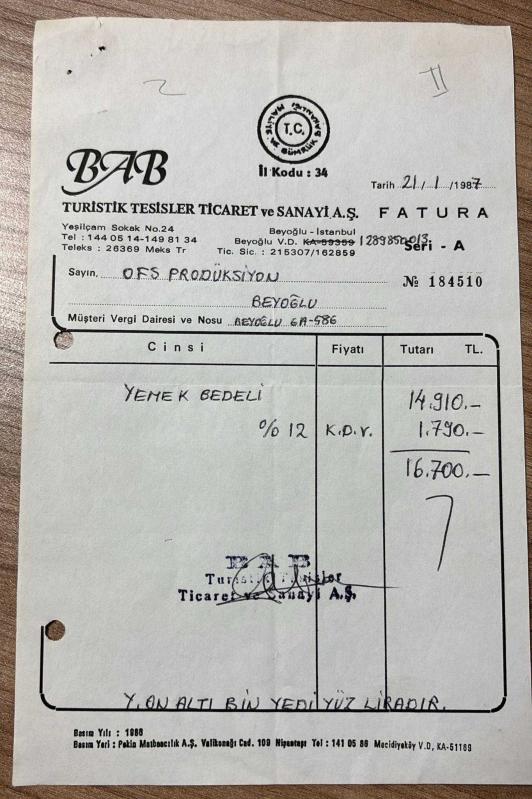 T.C.
MALİYE VE GÜMRÜK BAKANLIĞI
İl Kodu : 34
BAB
Tarih 21/1/1987
TURİSTİK TESİSLER TİCARET ve SANAYİ A.Ş.
FATURA
Yeşilçam Sokak No.24
Tel : 144 05 14-149 81 34
Teleks : 26369 Meks Tr
Beyoğlu - İstanbul
Beyoğlu V.D. KA-59359 1289850013
Tic. Sic. : 215307/162859
Seri - A
Sayın, OFS PRODÜKSİYON
№ 184510
BEYOĞLU
Müşteri Vergi Dairesi ve Nosu BEYOĞLU 6A-586
Cinsi Fiyatı Tutarı TL.
YEMEK BEDELİ 14.910.-
% 12 K.D.V. 1.790.-
16.700.-
BAB
Turistik Tesisler
Ticaret ve Sanayi A.Ş.
Y. ON ALTI BİN YEDİ YÜZ LİRADIR.
Basım Yılı : 1986
Basım Yeri : Pekin Matbaacılık A.Ş. Valikonağı Cad. 109 Nişantaşı Tel : 141 05 86 Mecidiyeköy V.D. KA-51169